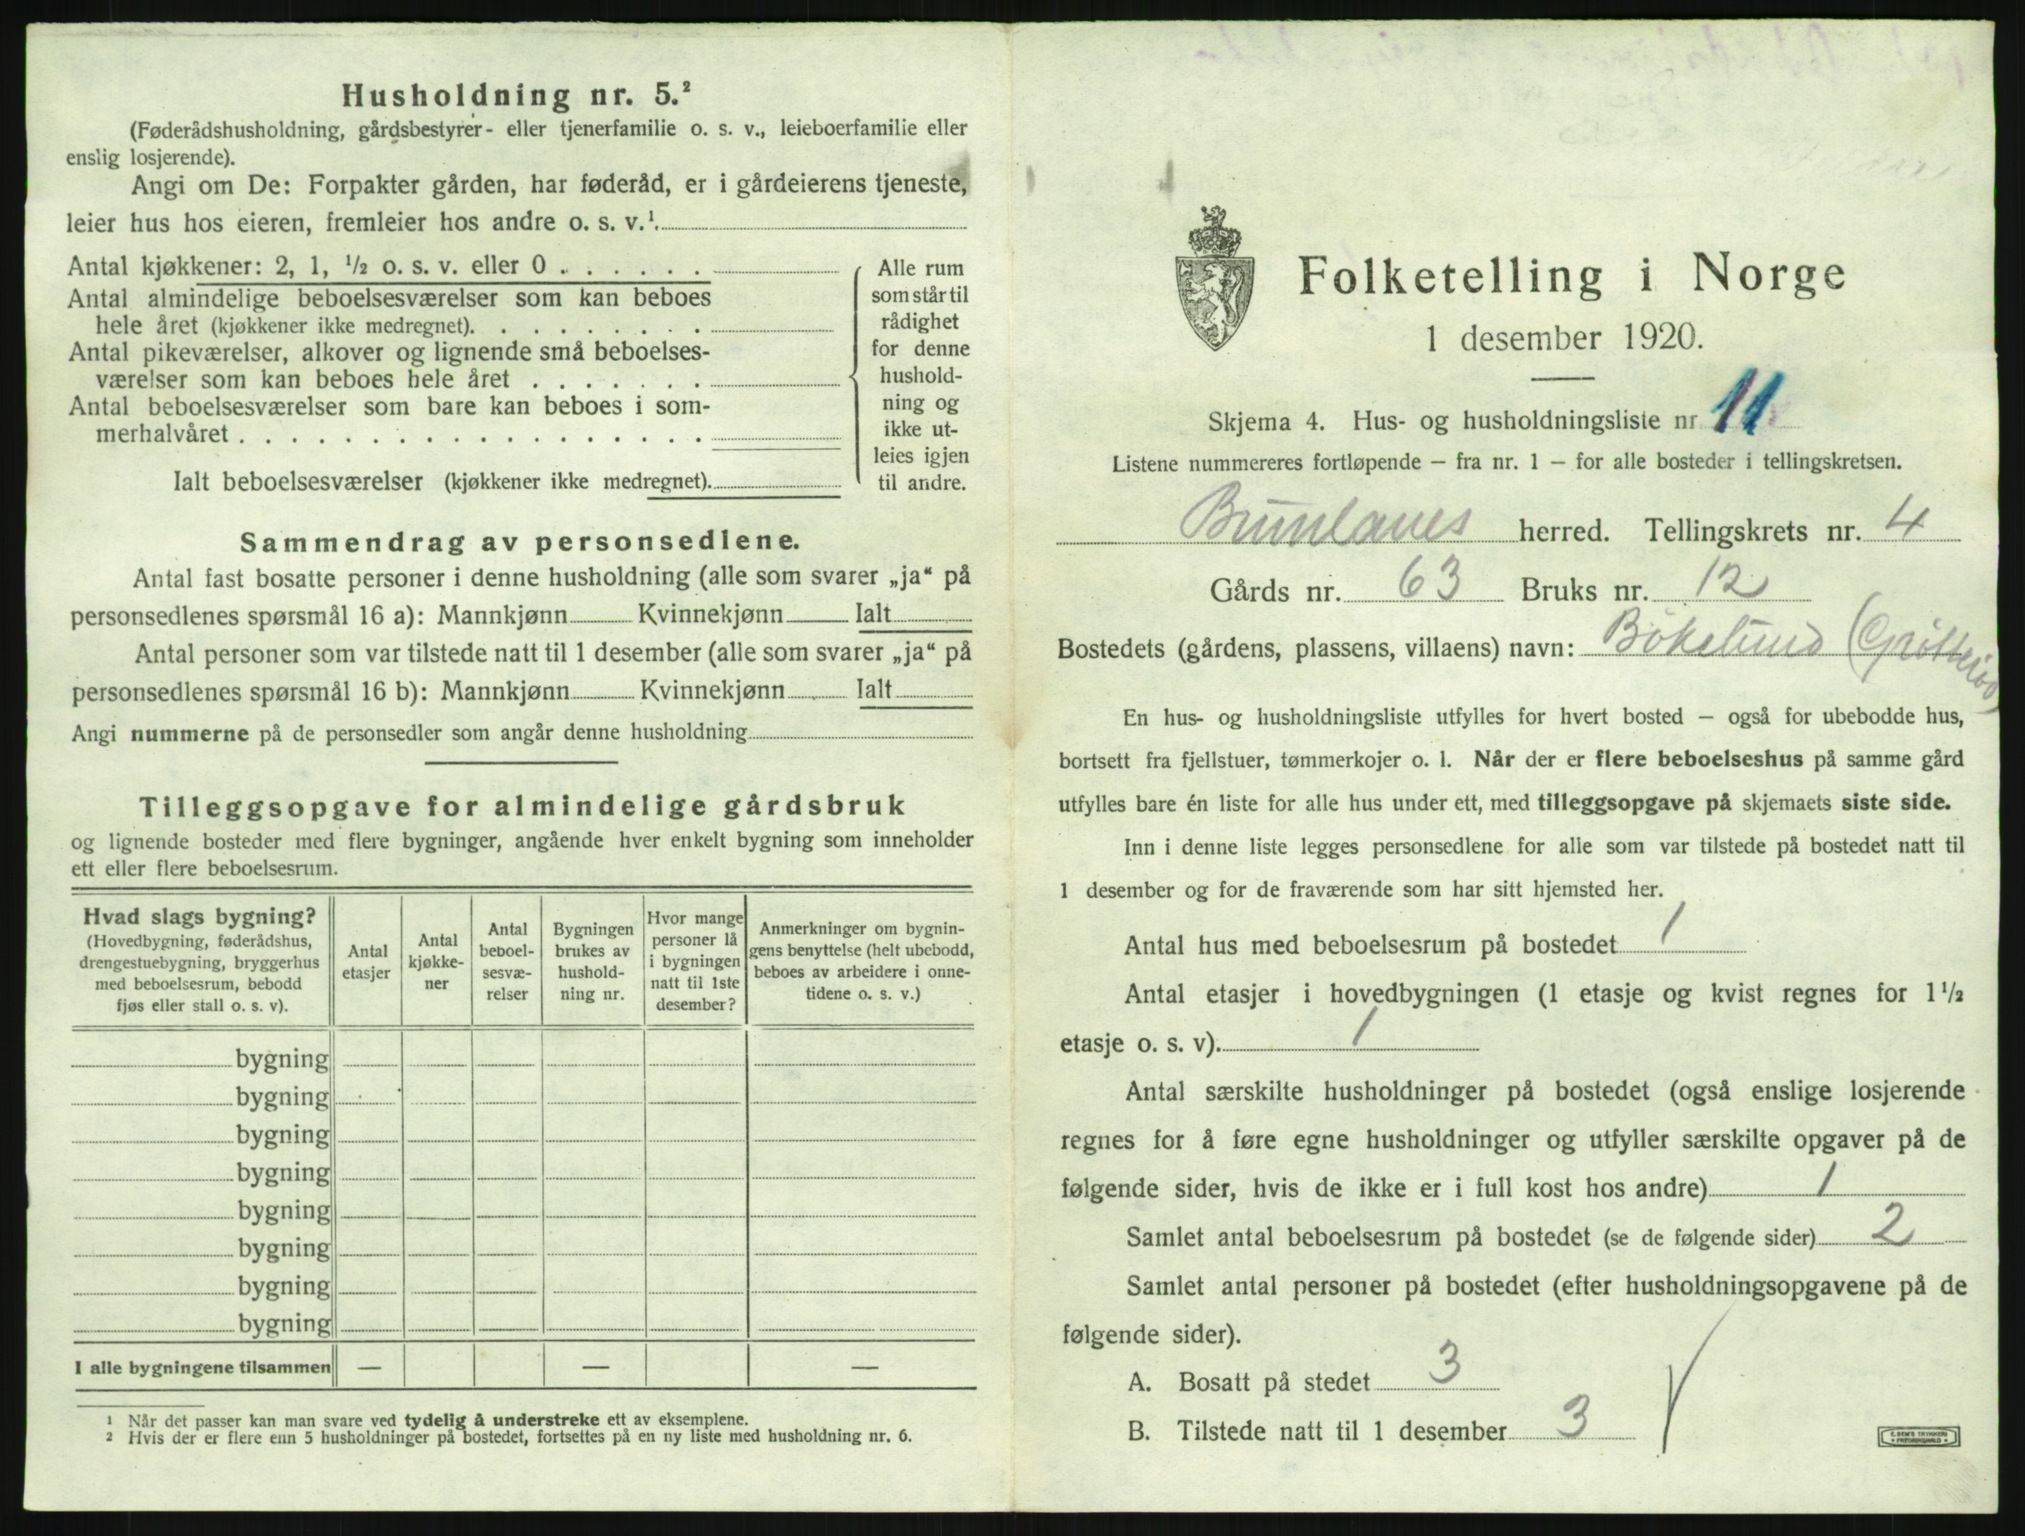 Husholdning nr. 5.²
(Føderådshusholdning, gårdsbestyrer- eller tjenerfamilie o. s. v., leieboerfamilie eller
enslig losjerende).
Angi om De: Forpakter gården, har føderåd, er i gårdeierens tjeneste,
leier hus hos eieren, fremleier hos andre o. s. v.¹
Antal kjøkkener: 2, 1, ½ o. s. v. eller 0 . . . . . .
Antal almindelige beboelsesværelser som kan beboes
hele året (kjøkkener ikke medregnet). . . . . . . . .
Antal pikeværelser, alkover og lignende små beboelses-
værelser som kan beboes hele året . . . . . . .
Antal beboelsesværelser som bare kan beboes i som-
merhalvåret . . . . . . . . . . . . . . . . . .
Ialt beboelsesværelser (kjøkkener ikke medregnet).
Alle rum
som står til
rådighet
for denne
hushold-
ning og
ikke ut-
leies igjen
til andre.
Sammendrag av personsedlene.
Antal fast bosatte personer i denne husholdning (alle som svarer „ja“ på
personsedlenes spørsmål 16 a): Mannkjønn Kvinnekjønn Ialt
Antal personer som var tilstede natt til 1 desember (alle som svarer „ja“ på
personsedlenes spørsmål 16 b): Mannkjønn Kvinnekjønn Ialt
Angi nummerne på de personsedler som angår denne husholdning
Tilleggsopgave for almindelige gårdsbruk
og lignende bosteder med flere bygninger, angående hver enkelt bygning som inneholder
ett eller flere beboelsesrum.
Hvad slags bygning?
(Hovedbygning, føderådshus,
drengestuebygning, bryggerhus
med beboelsesrum, bebodd
fjøs eller stall o. s. v).
Antal
etasjer
Antal
kjøkke-
ner
Antal
beboel-
sesvæ-
relser
Bygningen
brukes av
hushold-
ning nr.
Hvor mange
personer lå
i bygningen
natt til 1ste
desember?
Anmerkninger om bygnin-
gens benyttelse (helt ubebodd,
beboes av arbeidere i onne-
tidene o. s. v.)
bygning
bygning
bygning
bygning
bygning
bygning
bygning
bygning
I alle bygningene tilsammen — — —
¹ Når det passer kan man svare ved tydelig å understreke ett av eksemplene.
² Hvis der er flere enn 5 husholdninger på bostedet, fortsettes på en ny liste med husholdning nr. 6.
Folketelling i Norge
1 desember 1920.
Skjema 4. Hus- og husholdningsliste nr 11
Listene nummereres fortløpende – fra nr. 1 – for alle bosteder i tellingskretsen.
Brunlanes herred. Tellingskrets nr. 4
Gårds nr. 63 Bruks nr. 12
Bostedets (gårdens, plassens, villaens) navn: Bøkelund
En hus- og husholdningsliste utfylles for hvert bosted – også for ubebodde hus,
bortsett fra fjellstuer, tømmerkojer o. l. Når der er flere beboelseshus på samme gård
utfylles bare én liste for alle hus under ett, med tilleggsopgave på skjemaets siste side.
Inn i denne liste legges personsedlene for alle som var tilstede på bostedet natt til
1 desember og for de fraværende som har sitt hjemsted her.
Antal hus med beboelsesrum på bostedet 1
Antal etasjer i hovedbygningen (1 etasje og kvist regnes for 1½
etasje o. s. v). 1
Antal særskilte husholdninger på bostedet (også enslige losjerende
regnes for å føre egne husholdninger og utfyller særskilte opgaver på de
følgende sider, hvis de ikke er i full kost hos andre) 1
Samlet antal beboelsesrum på bostedet (se de følgende sider) 2
Samlet antal personer på bostedet (efter husholdningsopgavene på de
følgende sider).
A. Bosatt på stedet 3
B. Tilstede natt til 1 desember 3
E. SEM'S TRYKKERI
FREDRIKSHALD